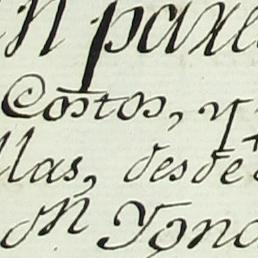 n paxa
Costos, y
llas, desde
on Yono